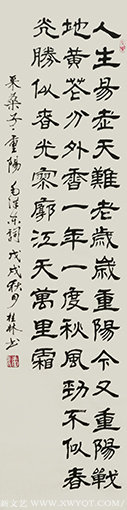 人生易老天難老歲歲重陽今又重陽戰
地黄花分外香一年一度秋風勁不似春
光勝似春光寥廓江天萬里霜
采桑子重陽 毛澤東詞 戊戌秋月桂林书
新文艺 WWW.XWYOT.COM